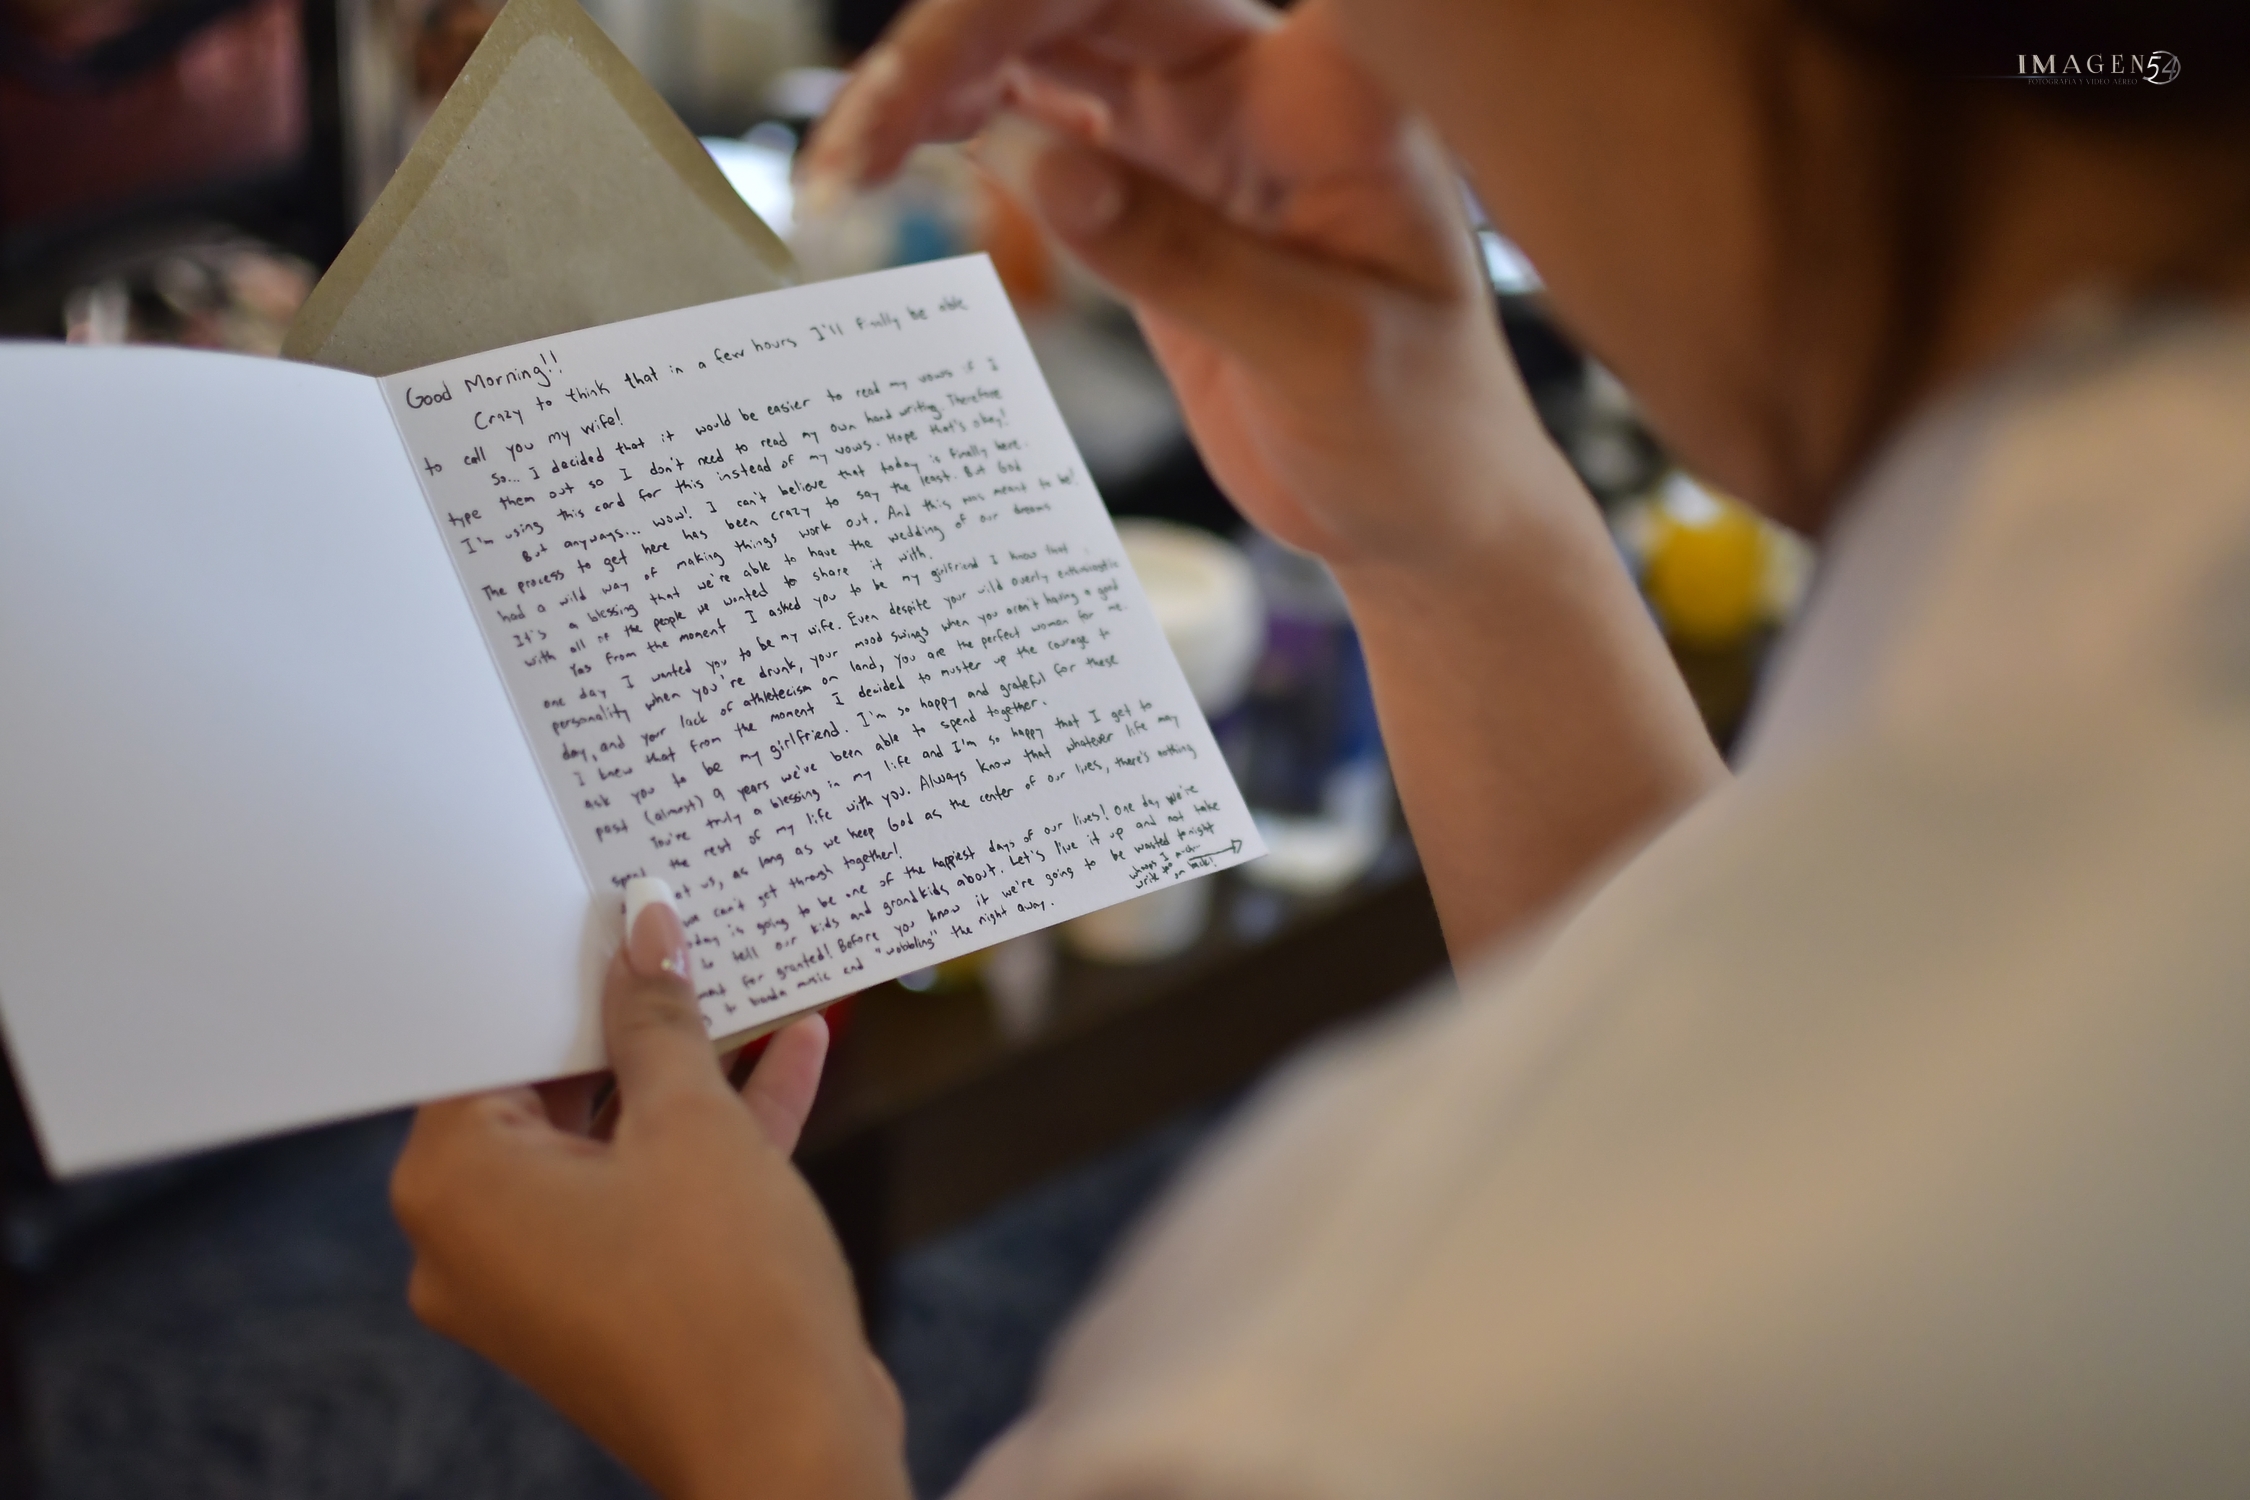 IMAGEN 54
FOTOGRAFÍA Y VIDEO AÉREO
Good Morning!!
Crazy to think that in a few hours I'll finally be able
to call you my wife!
So... I decided that it would be easier to read my vows if I
type them out so I don't need to read my own hand writing. Therefore
I'm using this card for this instead of my vows. Hope that's okay!
But anyways... wow! I can't believe that today is finally here.
The process to get here has been crazy to say the least. But God
had a wild way of making things work out. And this was meant to be!
It's a blessing that we're able to have the wedding of our dreams
with all of the people we wanted to share it with.
Yas from the moment I asked you to be my girlfriend I knew that
one day I wanted you to be my wife. Even despite your wild overly enthusiastic
personality when you're drunk, your mood swings when you aren't having a good
day, and your lack of athletecism on land, you are the perfect woman for me.
I knew that from the moment I decided to muster up the courage to
ask you to be my girlfriend. I'm so happy and grateful for these
past (almost) 9 years we've been able to spend together.
You're truly a blessing in my life and I'm so happy that I get to
spend the rest of my life with you. Always know that whatever life may
at us, as long as we keep God as the center of our lives, there's nothing
we can't get through together!
oday is going to be one of the happiest days of our lives! One day we're
to tell our kids and grandkids about. Let's live it up and not take
for granted! Before you know it we're going to be wasted tonight
to banda music and "wobbling" the night away.
whoops I
write too much
on back!